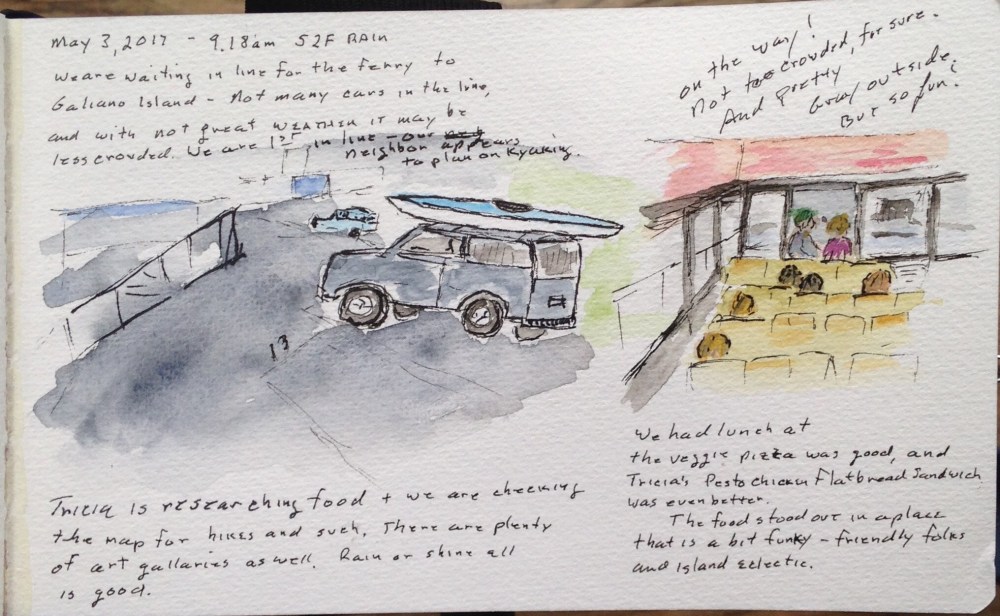 May 3, 2017 - 9.18am 52F RAIN
We are waiting in line for the ferry to
Galiano Island - Not many cars in the line,
and with not great WEATHER it may be
less crowded. We are 1st in line - our
neighbor appears
to plan on Kyaking.
13
Tricia is researching food + we are checking
the map for hikes and such. There are plenty
of art gallaries as well. Rain or shine all
is good.
on the way!
Not too crowded, for sure.
And pretty
Gray outside.
But so fun!
We had lunch at
the veggie pizza was good, and
Tricia's Pesto chicken Flatbread Sandwich
was even better.
The food stood out in a place
that is a bit funky - friendly folks
and island eclectic.